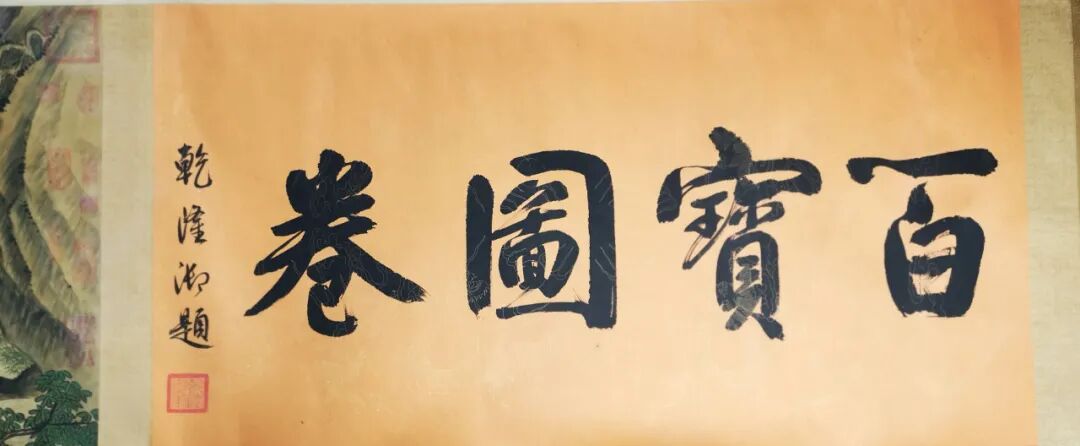 百寶圖卷
乾隆御題